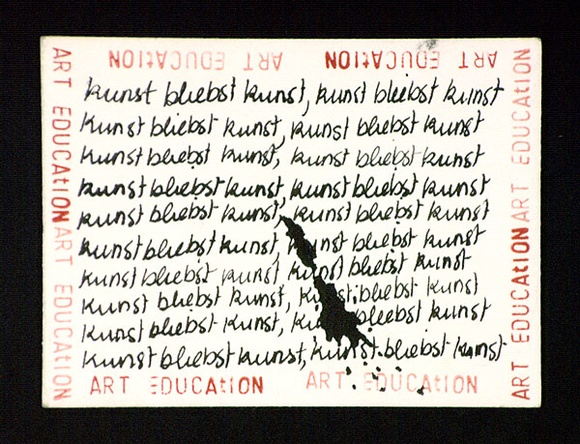 ART EDUCAtION ART EDUCAtION
kunst bliebst kunst, kunst bleebst kunst
kunst bliebst kunst, kunst bliebst kunst
kunst bliebst kunst, kunst bliebst kunst
kunst bliebst kunst, kunst bliebst kunst
kunst bliebst kunst, kunst bliebst kunst
kunst bliebst kunst, kunst bliebst kunst
kunst bliebst kunst, kunst bliebst kunst
kunst bliebst kunst, bliebst kunst
kunst bliebst kunst, bleebst kunst
kunst bliebst kunst, kunst bliebst kunst
ART EDUCAtION ART EDUCAtION
ART EDUCAtION ART EDUCAtION
ART EDUCAtION ART EDUCAtION